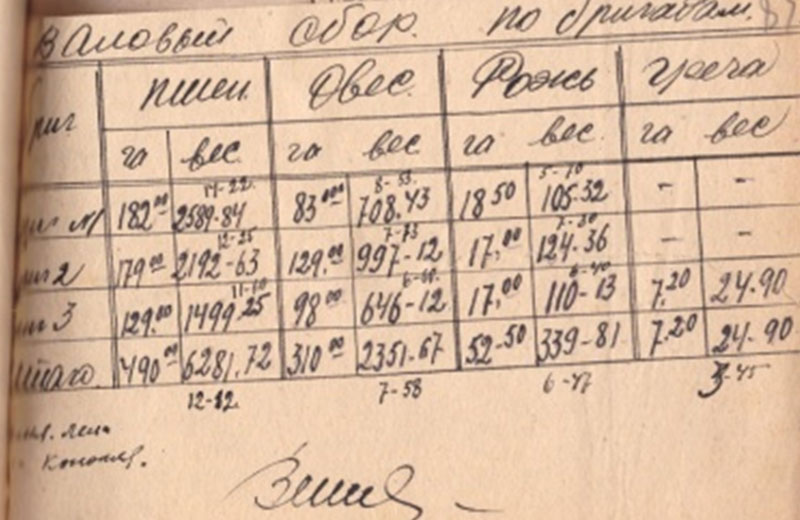 Валовый сбор. по бригадам.
риг пшен. Овес. Рожь Греча
га вес. га вес га вес. га вес
14-22. 8-53. 5-70
риг №1 182 00 2589-84 83 00 708.43 18 50 105-32 - -
12-25 7-73 7-30
риг 2 179 00 2192-63 129.00 997-12 17,00 124-36 - -
6-60 6-40
риг 3 129.00 1499.25 98 00 646-12 17,00 110-13 7.20 24-90
Итого. 490 00 6281.72 310 00 2351-67 52-50 339-81 7.20 24-90
7-58 6-47 3-45
Конопля.